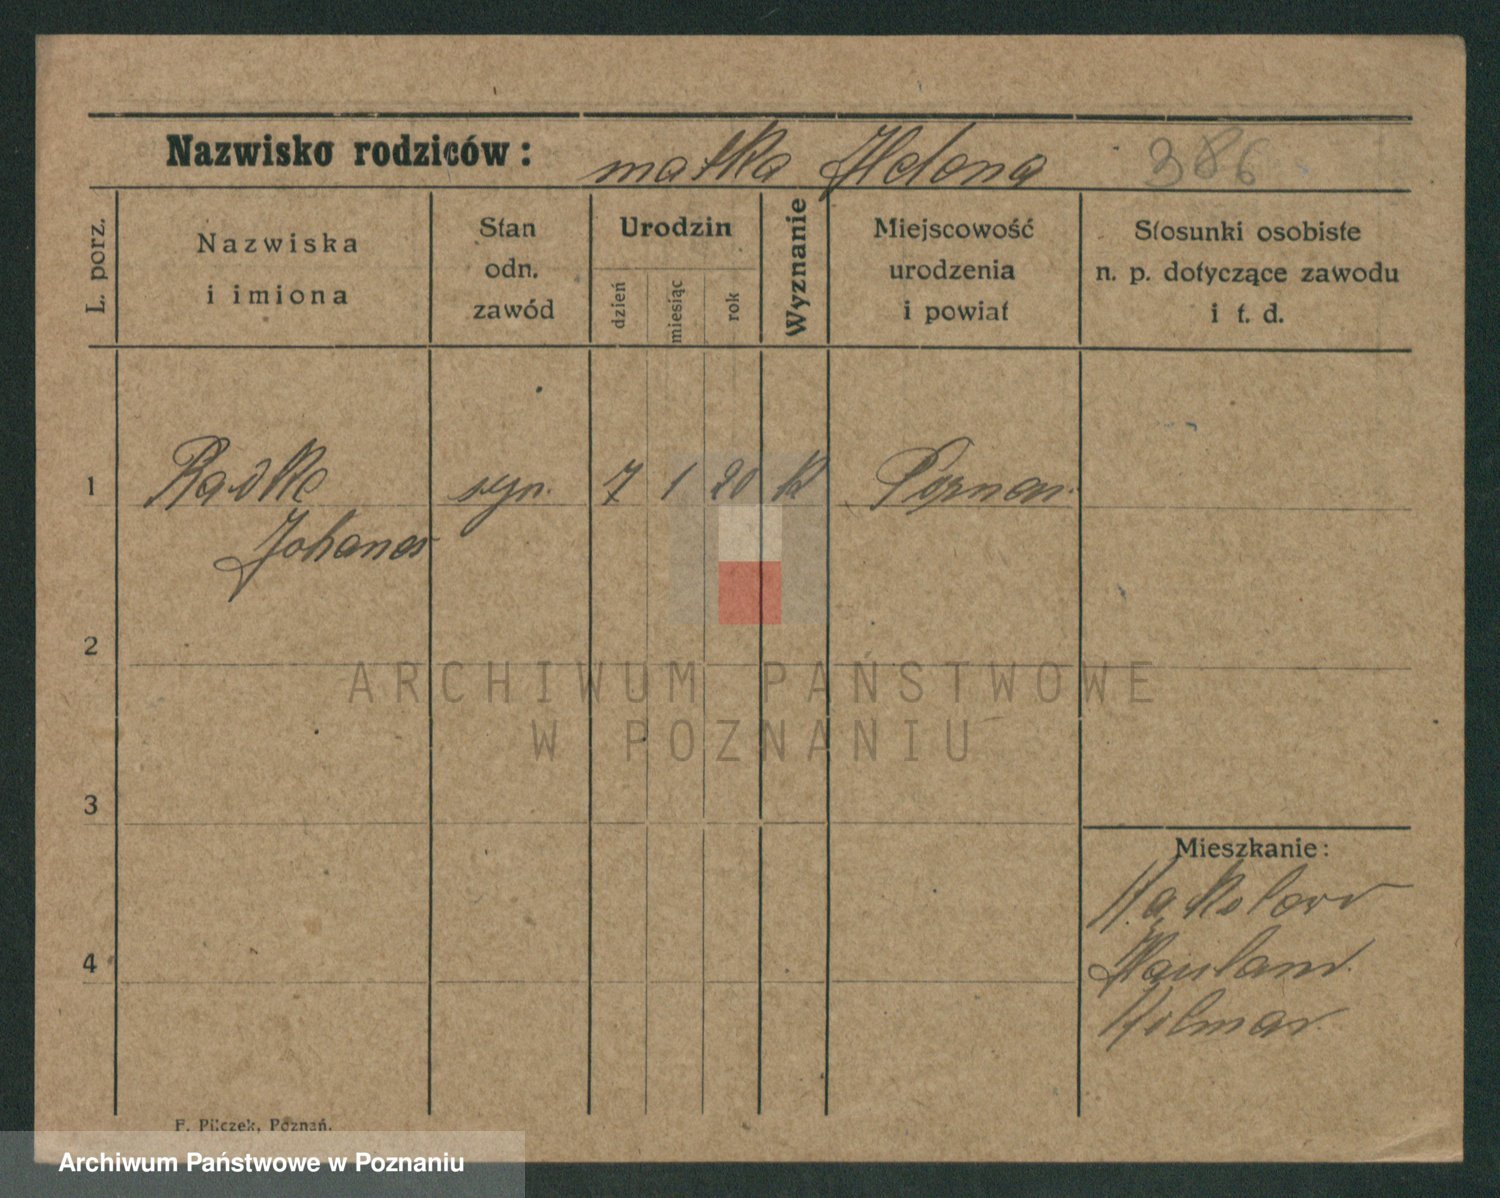 Nazwisko rodziców: matka Helena 386
L. porz.
Nazwiska
i imiona
Stan
odn.
zawód
Urodzin
dzień
miesiąc
rok
Wyznanie
Miejscowość
urodzenia
i powiat
Stosunki osobiste
n. p. dotyczące zawodu
i t. d.
1 Radke syn. 7 1 20 k Poznan.
Johanes
2
ARCHIWUM PAŃSTWOWE
W POZNANIU
3
Mieszkanie:
4
Kolmar.
F. Pilczek, Poznań.
Archiwum Państwowe w Poznaniu